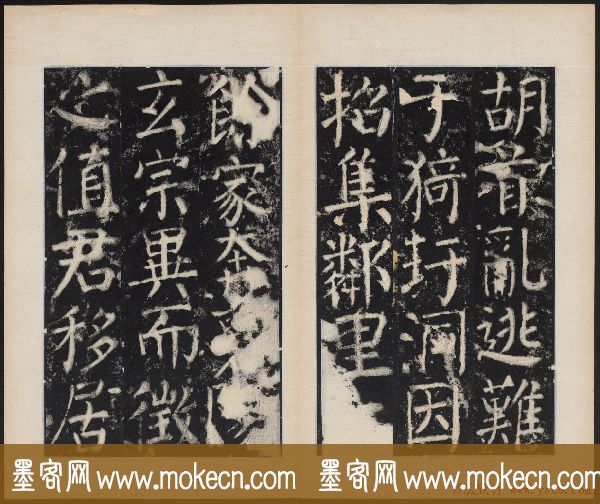 胡首亂逃難
于猗玗洞因
招集鄰里
家奔襄
玄宗異而徵
之值君移居
墨客网 www.mokecn.com
墨客网 www.mokecn.com